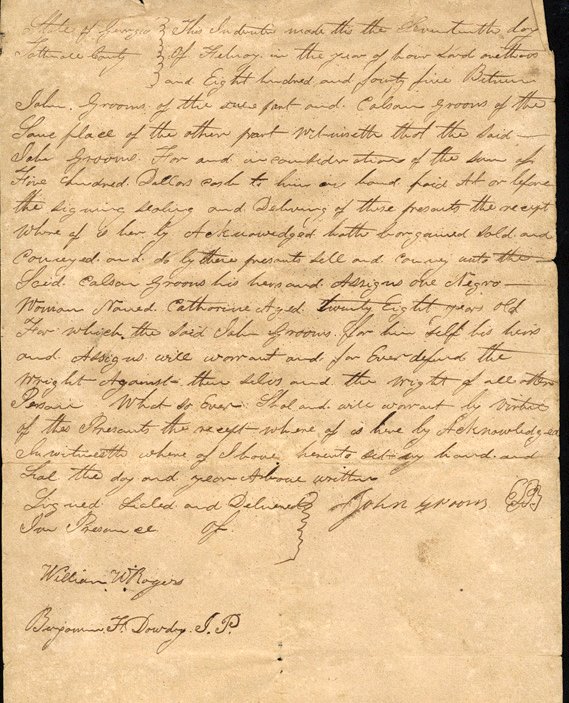 State of Georgia } This Indenture made this the Seventeenth day
Tattnall County } Of Febray. in the year of hour Lord
and Eight hundred and fourty five Between
John. Grooms. of the one part and. Calson Grooms of the
Same place of the other part Witnisseth that the Said —
John Grooms. For and in consideration of the sum of
Five hundred. Dollars cash to him in hand paid At or before
the signing sealing and Delivring of these presents the receipt
Where of is here by Acknowedged hath borgained Sold. and
Conveyed and do by these presents sell and convey unto the —
Said. Calson Grooms his heirs and Assigns one Negro —
Woman Named. Catharine Aged. twenty Eight years old
For which the Said John Grooms. for him self his heirs
and Assigns will warrant and for Ever defend the
Wright Against them selvs and the wright of all other
What so Ever. Shal and will warrant by virtue
of this Presents the recept where of is here by Acknowledged
In witnessth where of I have hereunto set my hand. and
Seal the day and year Above written
Signed Sealed and Delivered } John Grooms.
Presance of.
William W Rogers
Benjamin H. Dowdey. J. P.